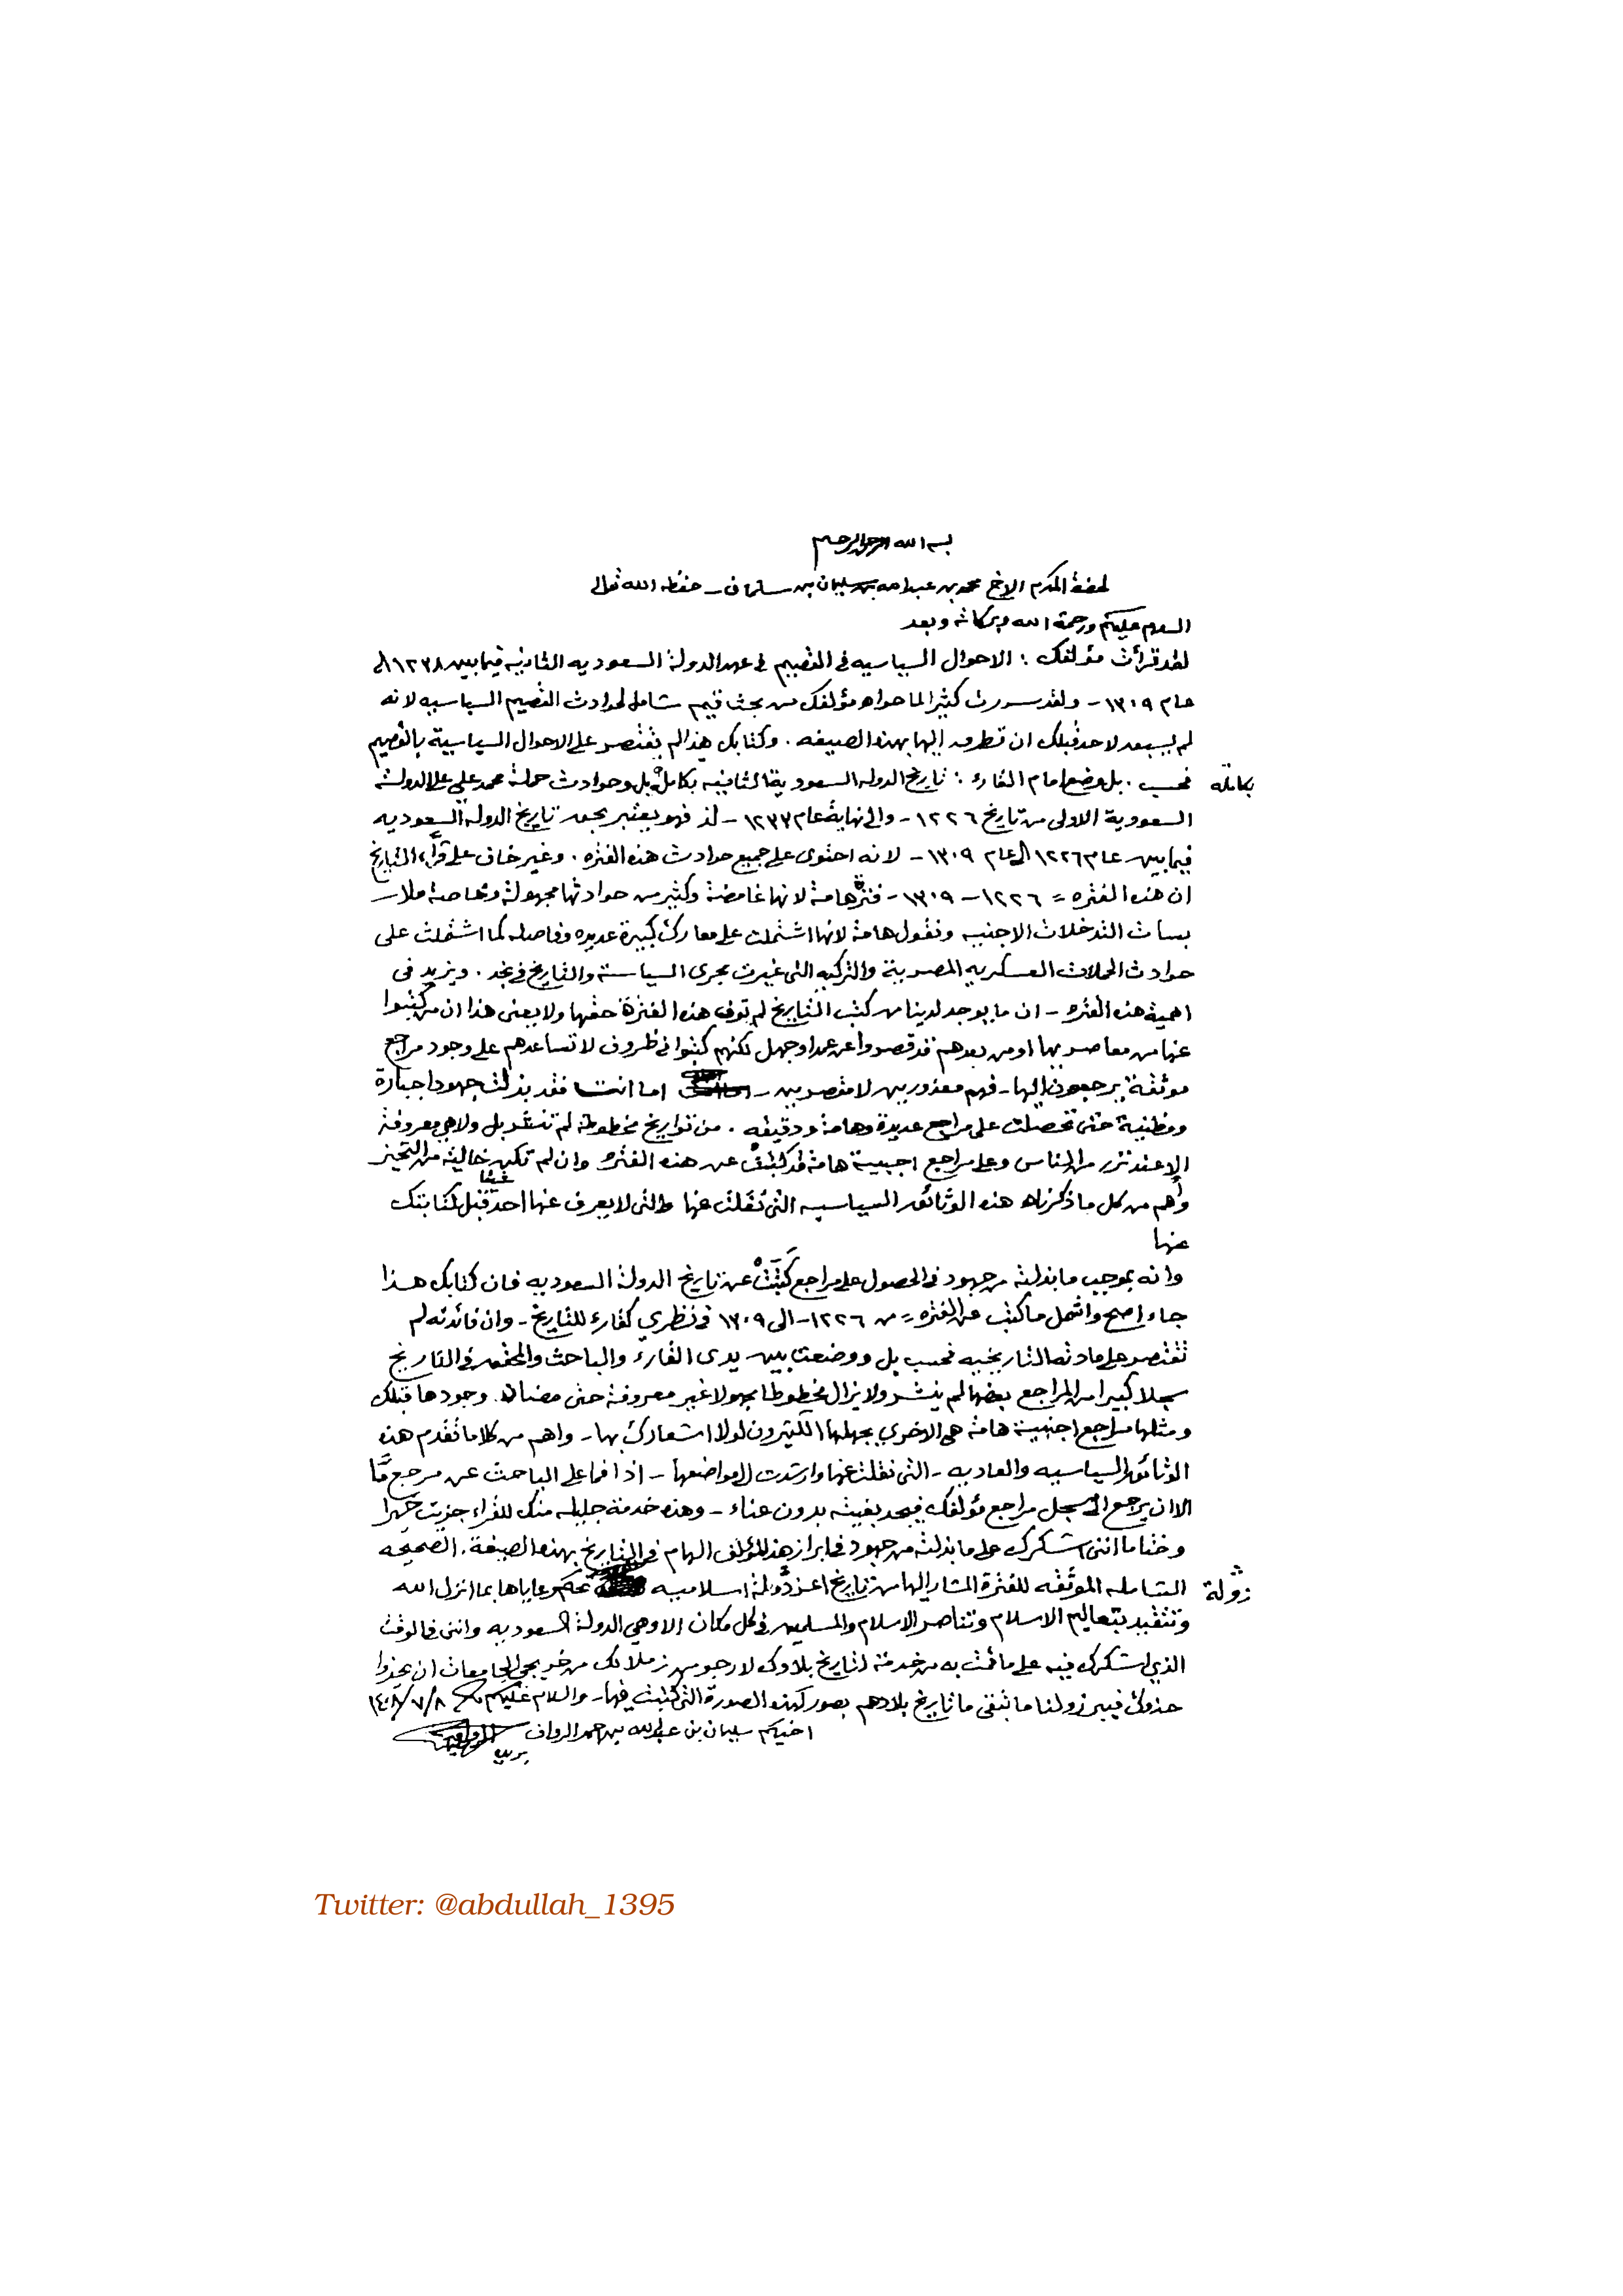 بسم الله الرحمن الرحيم
لحضة المكرم الاخ محمد بن عبدالله بن سليمان بن سلمان - حفظه الله تعالى
السلام عليكم ورحمة الله وبركاته وبعد
لقد قرأت مؤلفك : الاحوال السياسيه في القصيم في عهد الدولة السعوديه الثانيه فيما بين ١٢٣٨ الى
عام ١٣٠٩ - ولقد سررت كثيرا لما حواه مؤلفك من بحث قيم شامل لحوادث القصيم السياسيه لانه
لم يسبق لاحد قبلك ان تطرق اليها بهذه الصيغه . وكتابك هذا لم تقتصر على الاحوال السياسية بالقصيم
فحسب . بل وضع امام القارء : تاريخ الدوله السعودية الثانيه بكامله بل وحوادث حملة محمد علي على الدولة
بكامله
السعودية الاولى من تاريخ ١٢٢٦ - والى نهاية عام ١٢٣٣ - لذ فهو يعتبر بحق تاريخ الدولة السعوديه
فيما بين عام ١٢٢٦ الى عام ١٣٠٩ - لانه احتوى على جميع حوادث هذه الفتره . وغير خاف على قراء التاريخ
ان هذه الفتره = ١٢٢٦ - ١٣٠٩ - فترة هامة لانها غامضة وكثير من حوادثها مجهولة وخاصة
التدخلات الاجنبيه ونقول هامة لانها اشتملت على معارك كبيرة عديده وفاصله كما اشتملت على
حوادث الحملات العسكريه المصرية والتركيه التي غيرت مجرى السياسة والتاريخ في نجد . ويزيد في
اهمية هذه الفتره - ان ما يوجد لدينا من كتب التاريخ لم توف هذه الفترة حقها ولا يعنى هذا ان من كتبوا
عنها من معاصريها او من بعدهم قد قصروا عن عمد او جهل لكنهم كتبوا في ظروف لا تساعدهم على وجود مراجع
موثقة يرجعون اليها - فهم معذورين لا مقصرين - اما انت فقد بذلت جهودا جبارة
ومظنية حتى تحصلت على مراجع عديدة وهامة ودقيقه . من تواريخ مخطوطة لم تنشر بل ولا هي معروفة
الا عند نزر من الناس وعلى مراجع اجنبية هامة قد كتبت عن هذه الفتره وان لم تكن خالية من التحيز
وأهم من كل ما ذكرناه هذه الوثائق السياسيه التى نقلت عنها والتى لا يعرف عنها احد شيئا قبل كتابتك
عنها
وانه بموجب ما بذلته من جهود في الحصول على مراجع كتبت عن تاريخ الدولة السعوديه فان كتابك هذا
جاء اصح واشمل ما كتب عن الفتره = من ١٢٢٦ - الى ١٣٠٩ في نظري كقارء للتاريخ - وان فائدته لم
تقتصر على مادته التاريخيه فحسب بل ووضعت بين يدى القارء والباحث والمحقق في التاريخ
سجلا كبيرا من المراجع بعضها لم ينشر ولا يزال مخطوطا مجهولا غير معروفة حتى مضان وجودها قبلك
ومثلها مراجع اجنبية هامة هى الاخرى يجهلها الكثيرون لولا اشعارك بها - واهم من كل ما تقدم هذه
الوثائق السياسيه والعاديه - التى نقلت عنها وارشدت الى مواضعها - اذا فما على الباحث عن مرجع ما
الا ان يرجع الى سجل مراجع مؤلفك فيجد بغيته بدون عناء - وهذه خدمة جليله منك للقراء جزيت خيرا
وختاما اننى اشكرك على ما بذلته من جهود في ابراز هذا المؤلف الهام في التاريخ بهذه الصيغة . الصحيحه
الشامله الموثقه للفترة المشار اليها من تاريخ اعز دولة اسلاميه تحكم رعاياها بما انزل الله
دولة
وتتقيد بتعاليم الاسلام وتناصر الاسلام والمسلمين في كل مكان الا وهي الدولة السعوديه واننى في الوقت
الذي اشكرك فيه على ما قمت به من خدمة لتاريخ بلادك لارجو من زملائك من خريجي الجامعات ان يحذوا
حذوك فيبرزو لنا ما تبقى ما تاريخ بلادهم بصور كهذه الصورة التى كتبت فيها - والسلام عليكم ١٤٠٨/٧/٨
اخيكم سليمان بن عبدالله بن حمد الرواف
بريده
Twitter: @abdullah_1395